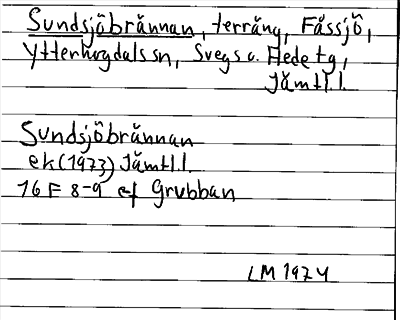 Sundsjöbrännan, terräng, Fåssjö,
Ytterhogdals sn, Svegs o. Hede tg,
Jämtl.l.
Sundsjöbrännan
ek (1973) Jämtl.l.
16 F 8-9 ef Grubban
LM 1974